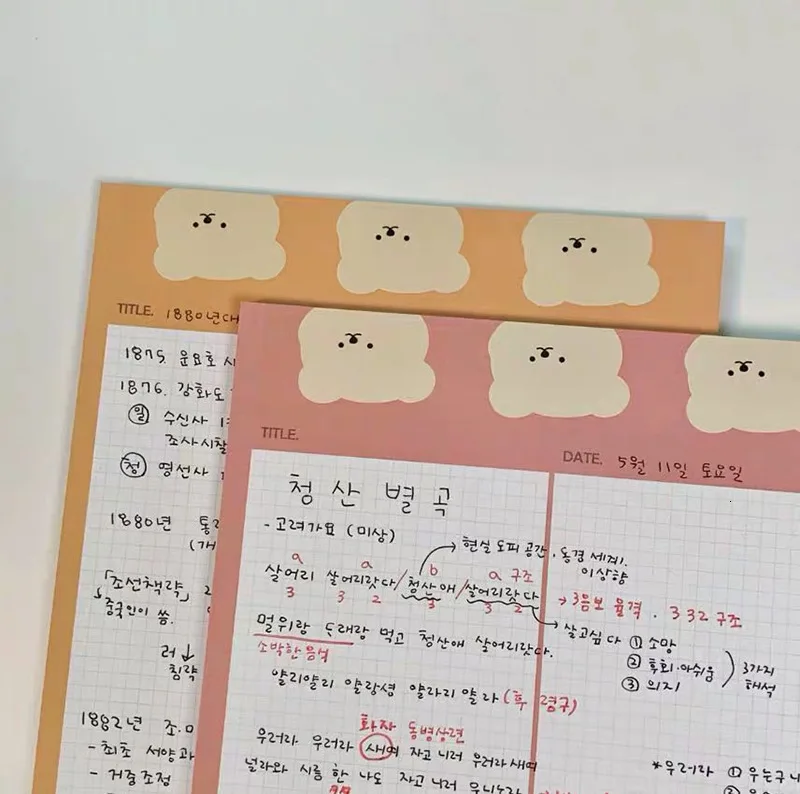 TITLE. 1880년대
1875. 운요호 사
1876. 강화도
일 수신사 1차
조사시찰
청 영선사
1880년 통리
(개
「조선책략」 2
중국인이 씀.
러↓
침략
1882년 조.미
- 최초 서양과
- 거중조정
TITLE.
DATE. 5월 11일 토요일
청산별곡
- 고려가요 (미상)
→ 현실 도피 공간. 동경 세계.
이상향
a a b a 구조
살어리 살어리랏다/청산애/살어리랏다
3 3 2 3 3 2
→ 3음보 율격. 3 3 2 구조
→ 살고싶다 ① 소망
② 후회·아쉬움
③ 의지
3가지
해석
멀위랑 ᄃ래랑 먹고 청산애 살어리랏다.
소박한 음식
얄리얄리 얄랑셩 얄라리 얄라 (후렴구)
화자 동병상련
우러라 우러라 새여 자고 니러 우러라 새여
널라와 시름 한 나도 자고 니러 우니노라
*우러라 ① 우는구나
②